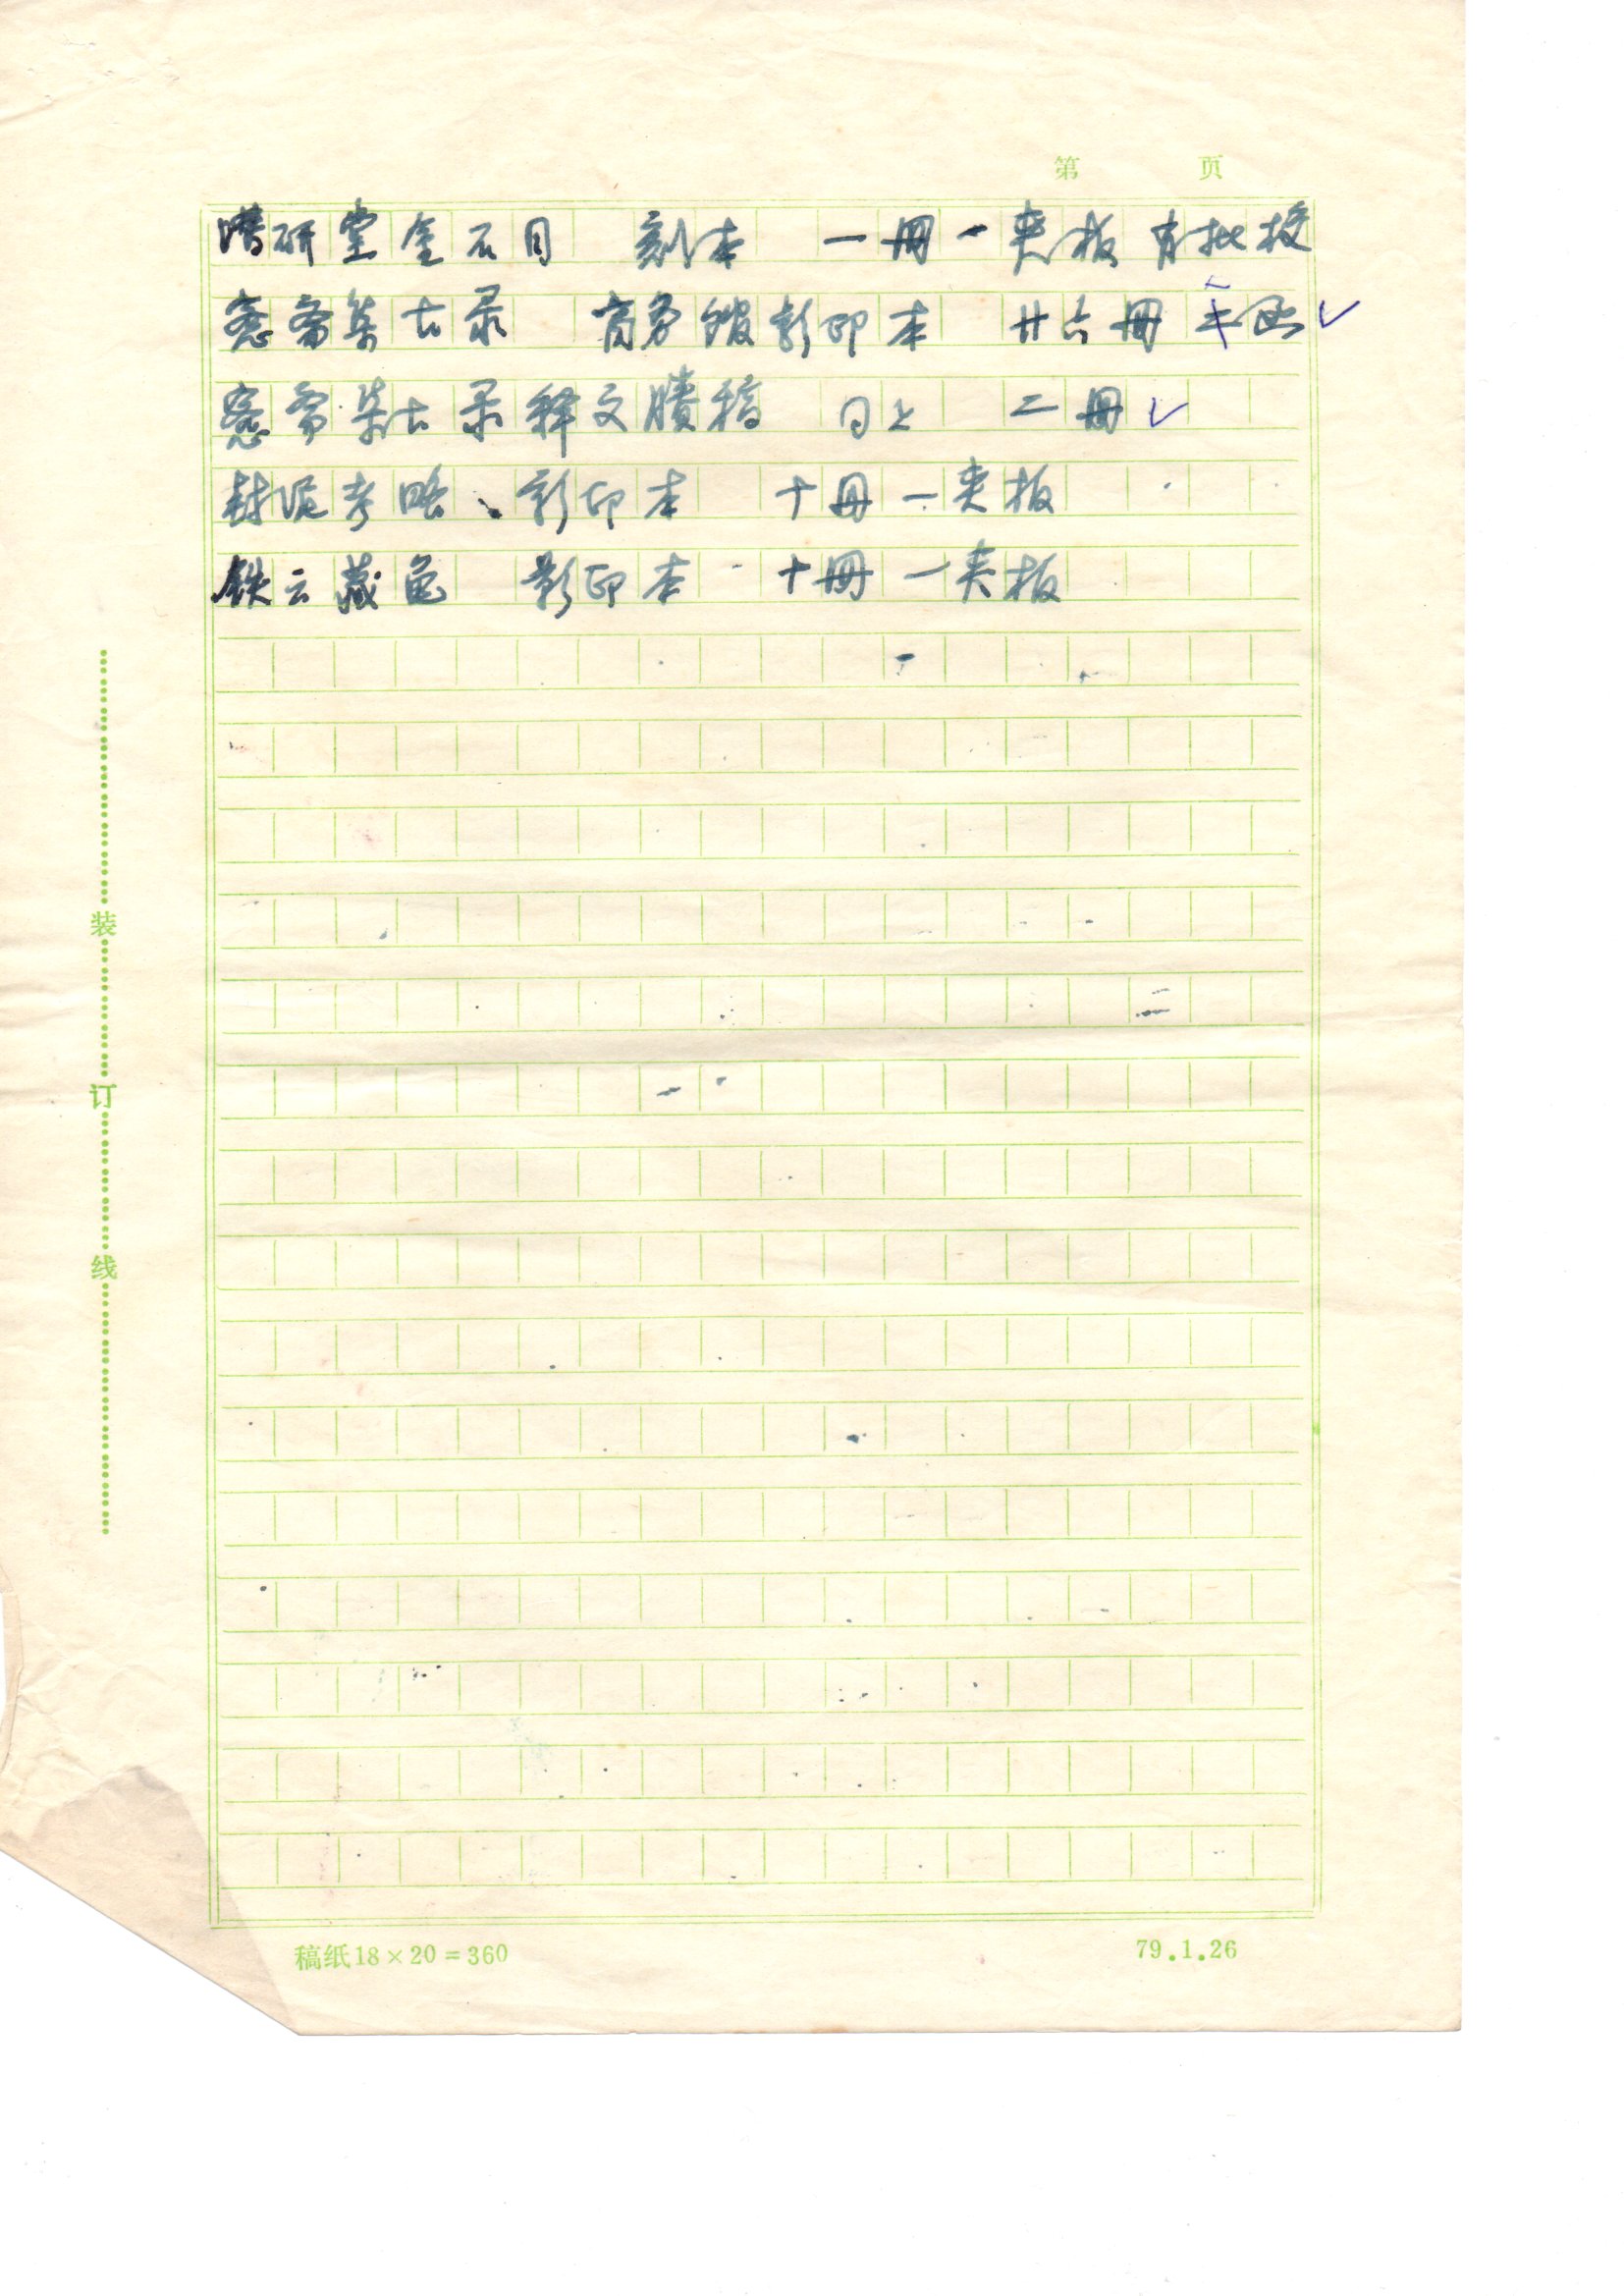 第 页
潜研堂金石目 刻本 一册一夹板 有批校
愙斋集古录 商务馆影印本 廿六册 二函✓
愙斋集古录释文賸稿 同上 二册✓
封泥考略、影印本 十册一夹板
铁云藏龟 影印本 十册一夹板
装
订
线
稿纸18×20=360 79.1.26